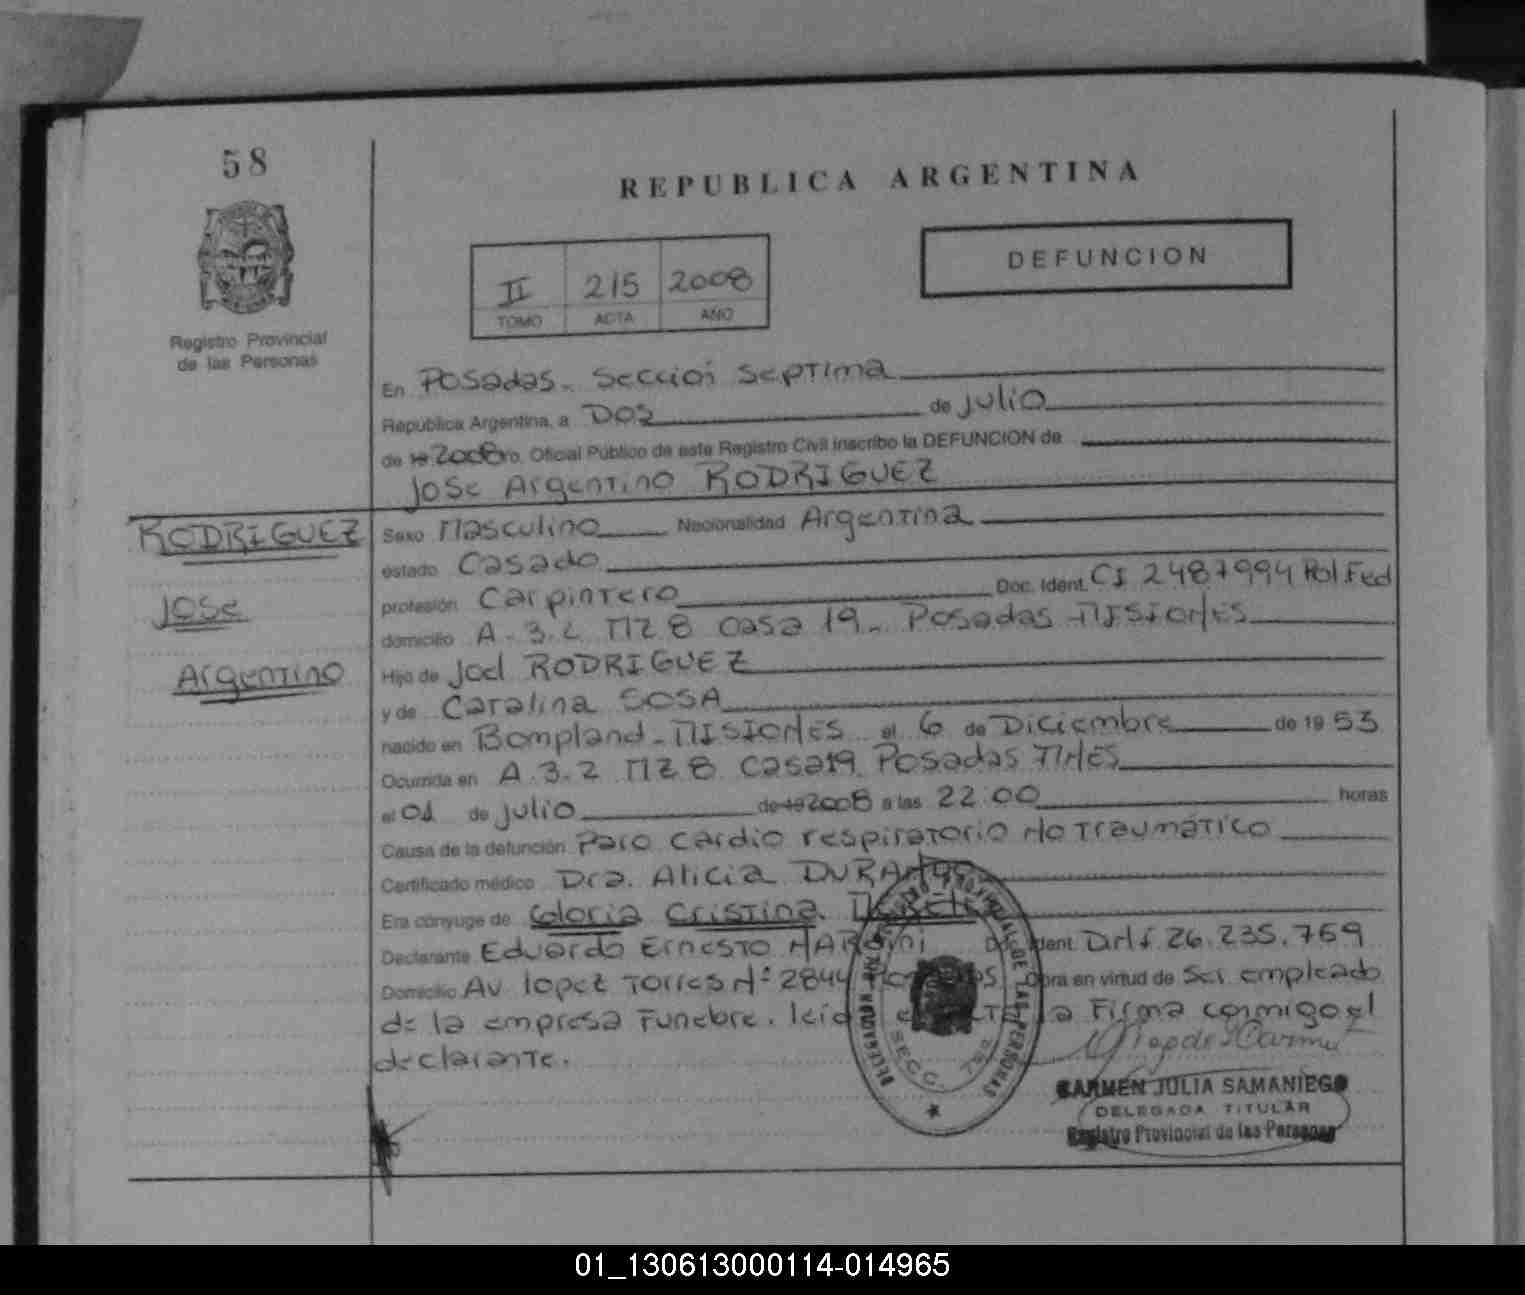 58
REPUBLICA ARGENTINA
DEFUNCION
II 215 2008
TOMO ACTA AÑO
Registro Provincial
de las Personas
En Posadas - Seccion Septima
República Argentina, a Dos de julio
de 19 2008 ro. Oficial Público de este Registro Civil inscribo la DEFUNCION de
Jose Argentino RODRIGUEZ
RODRIGUEZ
Jose
Argentino
Sexo Masculino Nacionalidad Argentina
estado Casado
profesión Carpintero Doc. Ident. CI 2487994 Pol. Fed
domicilio A-3-2 MZ 8 casa 19 - Posadas MISIONES
Hijo de Joel RODRIGUEZ
y de Catalina SOSA
nacido en Bompland - MISIONES el 6 de Diciembre de 1953
Ocurrida en A.3.2 MZ 8 casa 19 Posadas MNES
el 01 de julio de 19 2008 a las 22:00 horas
Causa de la defunción Paro cardio respiratorio No Traumático
Certificado médico Dra. Alicia
Era cónyuge de Gloria Cristina
Declarante Eduardo Ernesto Doc. Ident. DNI. 26.235.769
Domicilio Av. lopez Torres Nº 2844 Obra en virtud de Ser empleado
de la empresa Funebre. la Firma conmigo el
declarante.
REGISTRO PROVINCIAL DE LAS PERSONAS
SECC. 7ma
CARMEN JULIA SAMANIEGO
DELEGADA TITULAR
Registro Provincial de las Personas
01_130613000114-014965